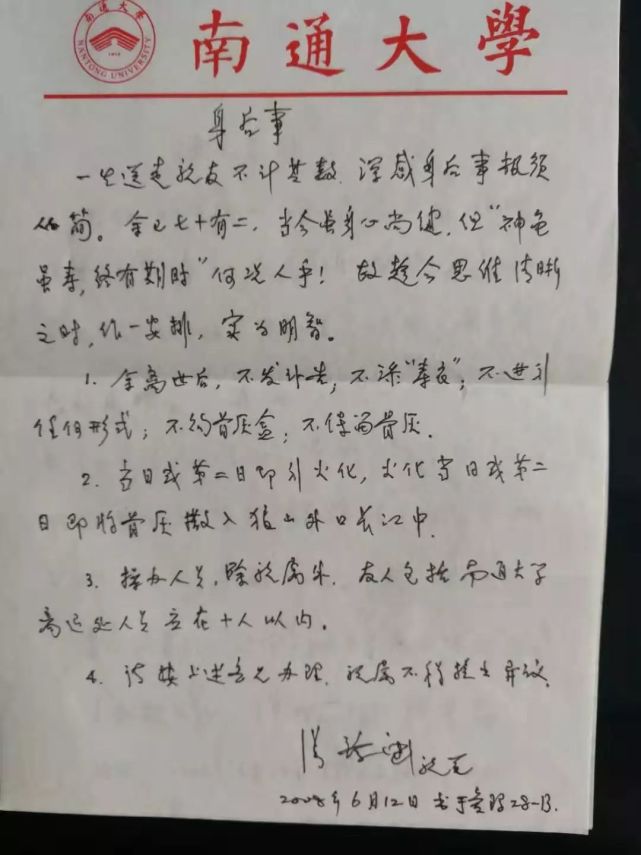 南通大学
NANTONG UNIVERSITY
1912
南通大學
身后事
一生送走親友不计其数，深感身后事极须
从简。余已七十有二，当今虽身心尚健，但"神龟
虽寿，终有期时"何况人乎！故趁今思维清晰
之时，作一安排，实为明智。
1. 余离世后，不发讣告；不添"寿衣"；不进引
任何形式；不约骨灰盒；不保留骨灰。
2. 当日或第二日即引火化，火化当日或第二
日即将骨灰撒入狼山外口长江中。
3. 操办人员，除親属外，友人包括南通大学
离退处人员应在十人以内。
4. 请按上述意见办理，親属不得提出异议。
2008年6月12日